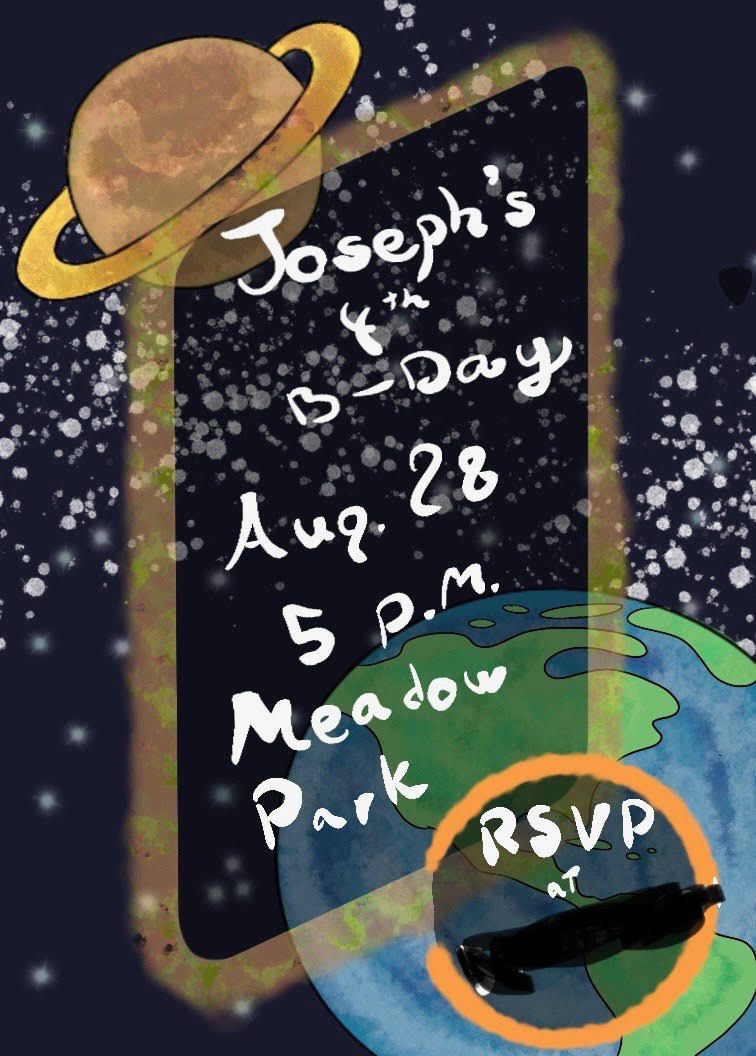 Joseph's
8th
B-Day
Aug. 28
5 p.m.
Meadow
Park
RSVP
aT